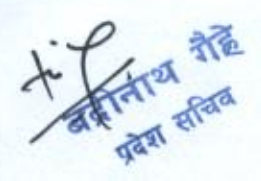 बद्रीनाथ गैह्रे
प्रदेश सचिव